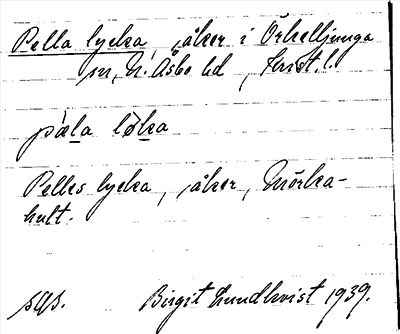 Pella lycka, åker i Örkelljunga
sn, N. Åsbo hd, Krist. l.
pæla løka
Pelles lycka, åker, Mörka-
hult.
sgs. Birgit Lundkvist 1939.